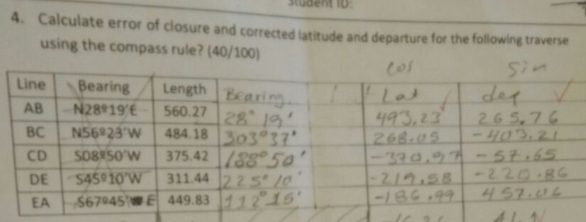 Student ID:
4. Calculate error of closure and corrected latitude and departure for the following traverse
using the compass rule? (40/100)
Cos Sin
Line Bearing Length Bearing Lat dep
AB N28°19'E 560.27 28° 19' 493.23 265.76
BC N56°23'W 484.18 303°37' 268.05 -403.21
CD S08°50'W 375.42 188°50' -370.97 -57.65
DE S45°10'W 311.44 225°10' -219.58 -220.86
EA S67°45' E 449.83 112°15' -186.99 457.06